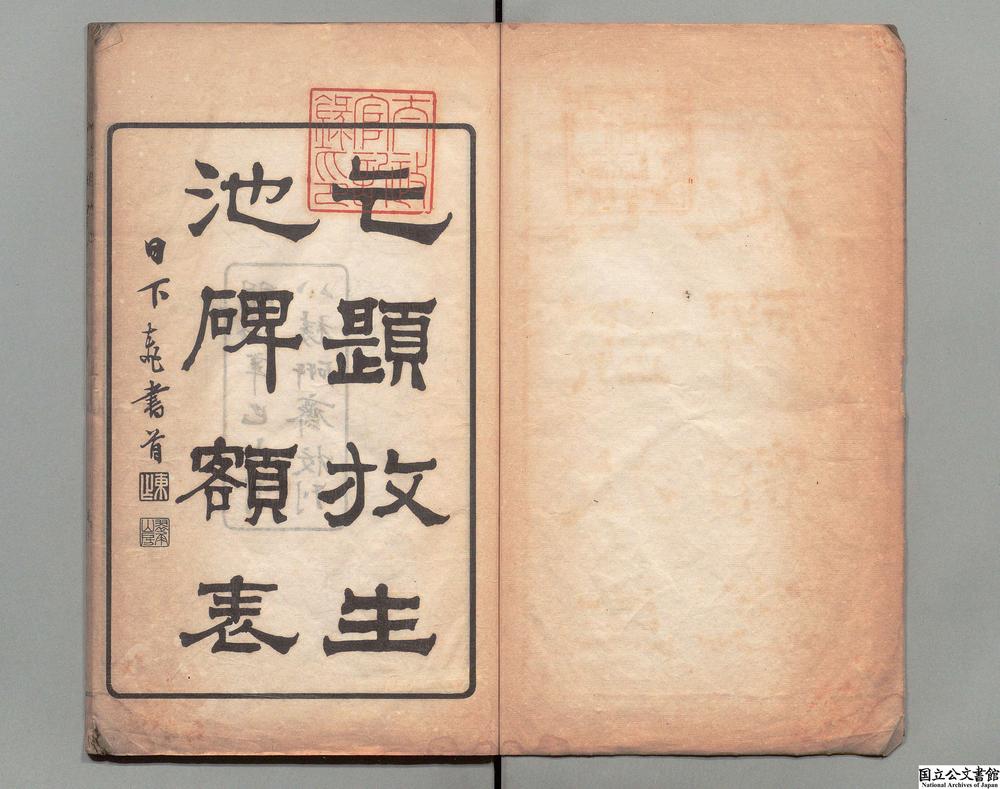 太政官記録印
乞題放生
池碑額表
日下 書首
国立公文書館
National Archives of Japan